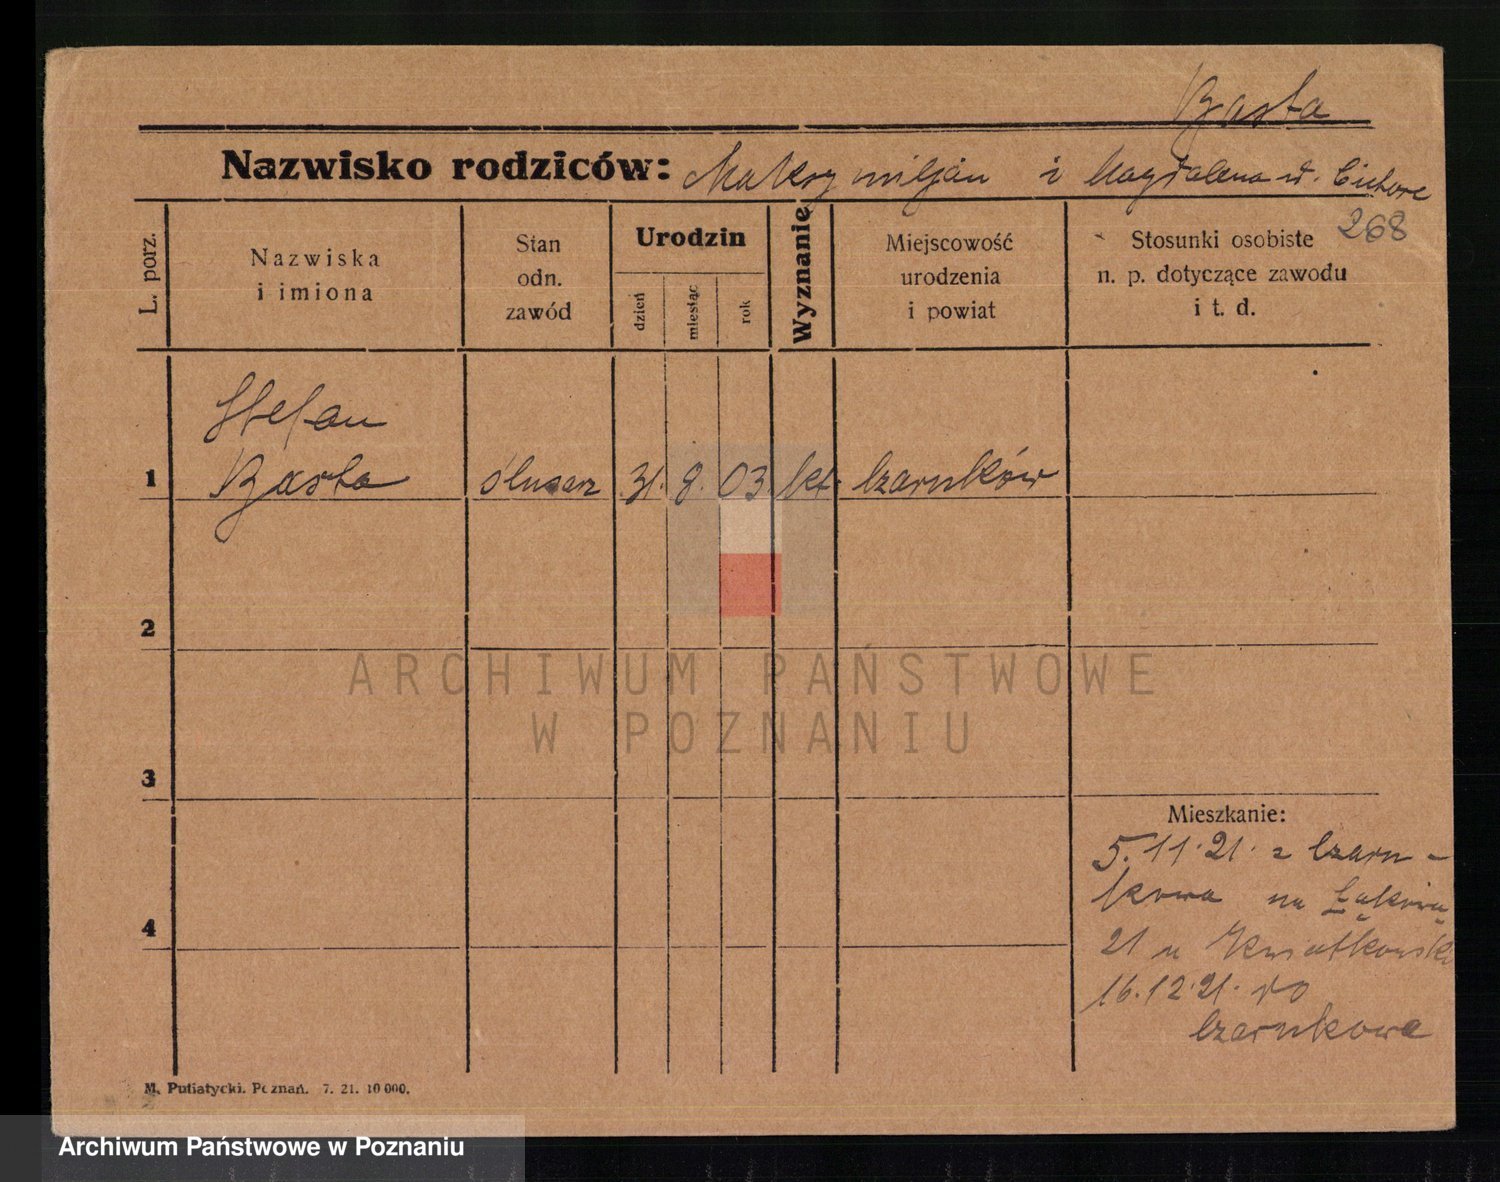 Basta
Nazwisko rodziców: Maksymiljan i Magdalena
268
L. porz.
Nazwiska
i imiona
Stan
odn.
zawód
Urodzin
dzień
miesiąc
rok
Wyznanie
Miejscowość
urodzenia
i powiat
Stosunki osobiste
n. p. dotyczące zawodu
i t. d.
Stefan
1 Basta ślusarz 31. 8. 03. kt. Czarnków
2
3
4
Mieszkanie:
5.11.21. z Czarn-
kowa na Łąkową
21 u Kwiatkowski
16.12.21. do
Czarnkowa
M. Putiatycki. Poznań. 7. 21. 10 000.
ARCHIWUM PAŃSTWOWE
W POZNANIU
Archiwum Państwowe w Poznaniu